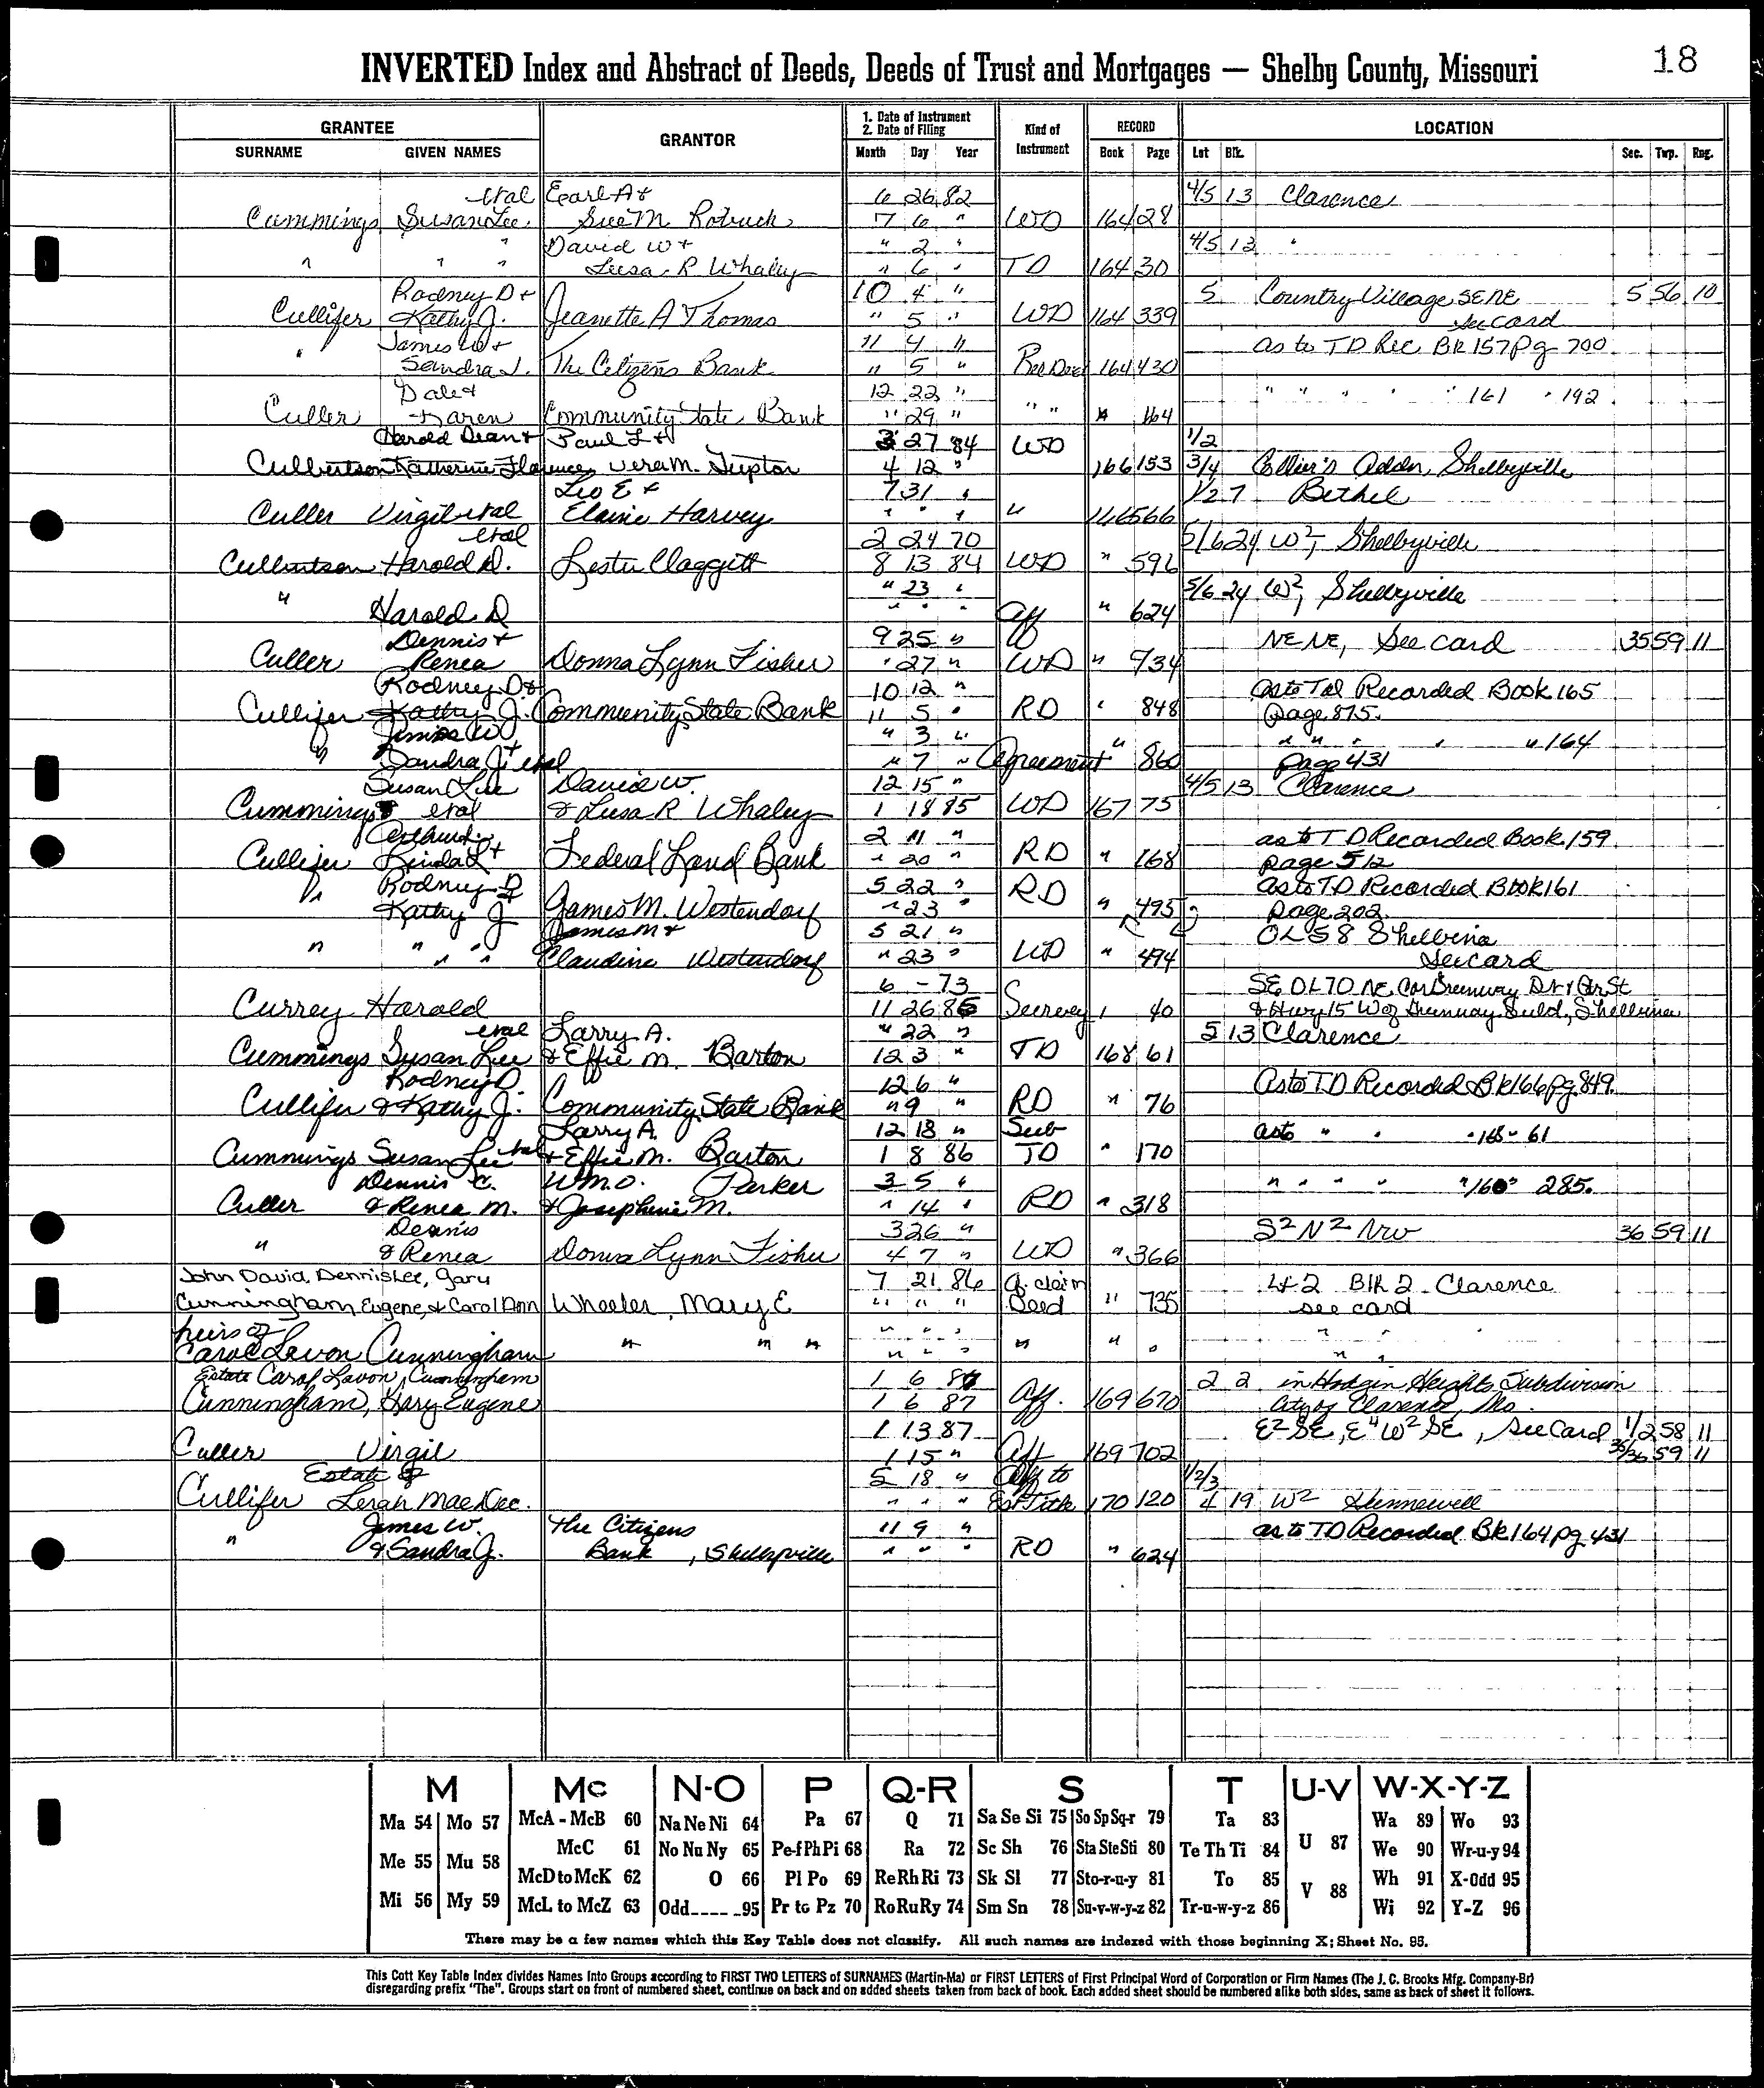 18
INVERTED Index and Abstract of Deeds, Deeds of Trust and Mortgages — Shelby County, Missouri
GRANTEE GRANTOR 1. Date of Instrument 2. Date of Filing Kind of Instrument RECORD LOCATION
SURNAME GIVEN NAMES Month Day Year Book Page Lot Blk. Sec. Twp. Rng.
etal Earl A + 6 26 82 4/5 13 Clarence
Cummings Susan Lee Sue M. 7 6 " WD 164 28
" David W + " 2 " 4/5 13 "
" " " Leesa R Whaley " 6 " TD 164 30
Rodney D + 10 4 " 5 Country Village SE NE 5 56 10
Cullifer Kathy J. Jeanette A Thomas " 5 " WD 164 339 See card
James W + 11 4 " as to TD Rec BK 157 pg 700
" Sandra J. The Citizens Bank " 5 " Rel Deed 164 430
Dale + 12 22 " " " " " " 161 " 192
Culler Karen Community State Bank " 29 " " " " 164
Harold Dean + Paul L + 3 27 84 WD 1/2
Culbertson Katherine Florence Vera M. Tipton 4 12 " 166 153 3/4 Collier's Addn, Shelbyville
Leo E + 7 31 " 1/2 7 Bethel
Culler Virgil etal Elaine Harvey " " " " 166 566
etal 2 24 70 5/6 24 W2, Shelbyville
Culbertson Harold D. Lester Claggett 8 13 84 WD " 596
" 23 " 5/6 24 W2, Shelbyville
" Harold D " " " Aff " 624
Dennis + 9 25 " NE NE, See card 35 59 11
Culler Renea Donna Lynn Fisher " 27 " WD " 734
Rodney D + 10 12 " as to Td Recorded Book 165
Cullifer Kathy J. Community State Bank 11 5 " RD " 848 page 875.
James W + " 3 " " " " " " 164
" Sandra J etal " 7 " Agreement " 860 page 431
Susan Lee David W. 12 15 " 4/5 13 Clarence
Cummings etal & Leesa R Whaley 1 18 85 WD 167 75
2 11 " as to TD Recorded Book 159
Cullifer Linda L + Federal Land Bank " 20 " RD " 168 page 512
Rodney D 5 22 " RD as to TD Recorded Book 161
" Kathy J James M. Westendorf " 23 " " 495 page 202.
James M + 5 21 " OL 58 Shelbina
" " " " Claudine Westendorf " 23 " WD " 494 See card
6 - 73 SE OL 70 NE Cor Greenway Dr + Ctr St
Currey Harold 11 26 85 Survey 1 40 & Hwy 15 W of Greenway Suld, Shelbina
etal Larry A. " 22 " 5 13 Clarence
Cummings Susan Lee & Effie M. Barton 12 3 " TD 168 61
Rodney D. 12 6 " As to TD Recorded Bk 166 pg. 849.
Cullifer & Kathy J. Community State Bank " 9 " RD " 76
Larry A. 12 18 " Sub as to " " " 168 " 61
Cummings Susan Lee etal + Effie M. Barton 1 8 86 TD " 170
Dennis C. Wm. O. Parker 3 5 " " " " " " 160 " 285.
Culler & Renea M. & Josephine M. " 14 " RD " 318
Dennis 3 26 " S2 N2 NW 36 59 11
" & Renea Donna Lynn Fisher 4 7 " WD " 366
John David, Dennis Lee, Gary 7 21 86 Q. claim Lt 2 Blk 2 Clarence
Cunningham, Eugene, & Carol Ann Wheeler, Mary E " " " Deed " 735 see card
heirs of " " " " "
Carol Lavon Cunningham " " " " " " " " " " "
Estate Carol Lavon, Cunningham 1 6 87 2 2 in Hodgin Heights Subdivision
Cunningham, Gary Eugene 1 6 87 Aff. 169 670 City of Clarence, Mo.
1 13 87 E2 SE, E4 W2 SE, See Card 1/2 58 11
Culler Virgil 1 15 " Aff 169 702 35/36 59 11
Estate of 5 18 " Aff to 1/2/3
Cullifer Lerah Mae Dec. " " " Est Title 170 120 4 19 W2 Hunnewell
James W. The Citizens 11 9 " as to TD Recorded Bk 164 pg 431
" & Sandra J. Bank, Shelbyville " " " RD " 624
M Mc N-O P Q-R S T U-V W-X-Y-Z
Ma 54 Mo 57 McA - McB 60 Na Ne Ni 64 Pa 67 Q 71 Sa Se Si 75 So Sp Sq-r 79 Ta 83 U 87 Wa 89 Wo 93
McC 61 No Nu Ny 65 Pe-f Ph Pi 68 Ra 72 Sc Sh 76 Sta Ste Sti 80 Te Th Ti 84 We 90 Wr-u-y 94
Me 55 Mu 58 McD to McK 62 O 66 Pl Po 69 Re Rh Ri 73 Sk Sl 77 Sto-r-u-y 81 To 85 V 88 Wh 91 X-Odd 95
Mi 56 My 59 McL to McZ 63 Odd 95 Pr to Pz 70 Ro Ru Ry 74 Sm Sn 78 Su-v-w-y-z 82 Tr-u-w-y-z 86 Wi 92 Y-Z 96
There may be a few names which this Key Table does not classify. All such names are indexed with those beginning X; Sheet No. 95.
This Cott Key Table Index divides Names Into Groups according to FIRST TWO LETTERS of SURNAMES (Martin-Ma) or FIRST LETTERS of First Principal Word of Corporation or Firm Names (The J. C. Brooks Mfg. Company-Br)
disregarding prefix "The". Groups start on front of numbered sheet, continue on back and on added sheets taken from back of book. Each added sheet should be numbered alike both sides, same as back of sheet it follows.